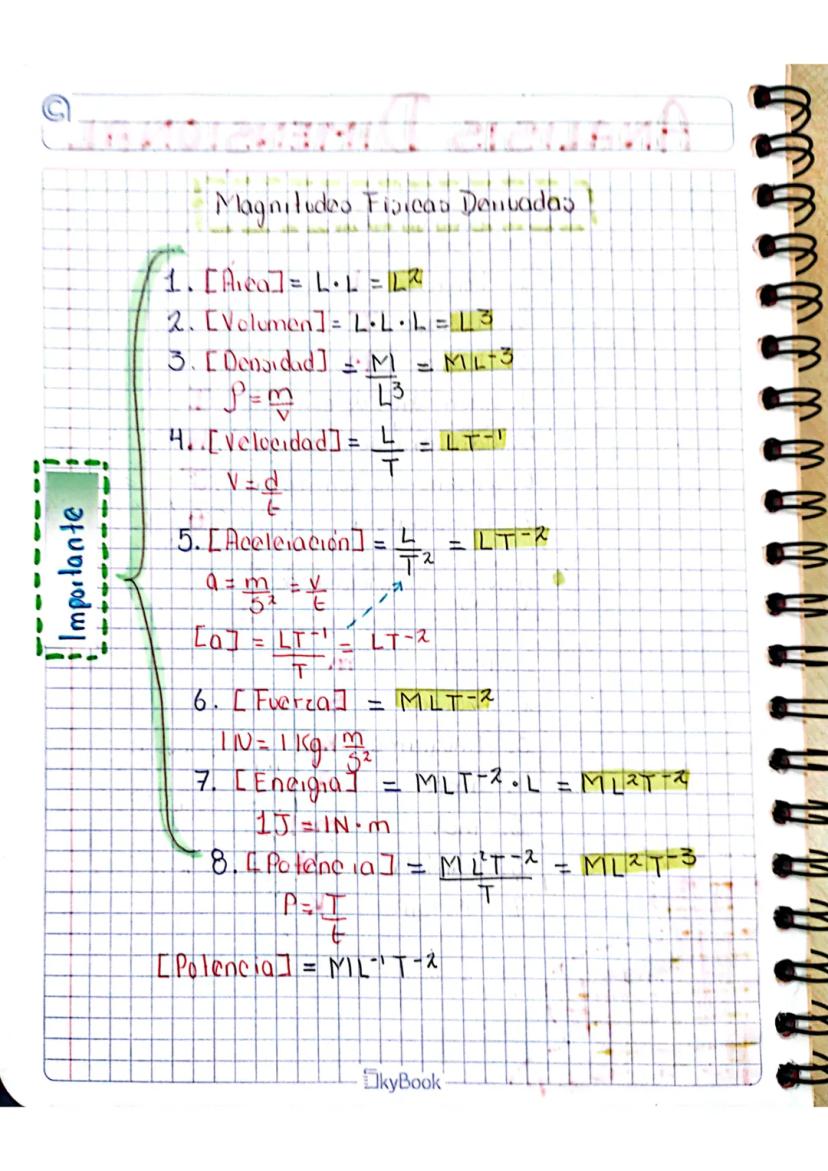 Magnitudes Fisicas Derivadas
1. [Área] = L·L = L²
2. [Volumen] = L·L·L = L³
3. [Densidad] = M/L³ = ML⁻³
ρ = m/v
4. [Velocidad] = L/T = LT⁻¹
V = d/t
5. [Aceleración] = L/T² = LT⁻²
a = m/s² = v/t
[a] = LT⁻¹/T = LT⁻²
Importante
6. [Fuerza] = MLT⁻²
1N = 1Kg. m/s²
7. [Energia] = MLT⁻²·L = ML²T⁻²
1J = 1N·m
8. [Potencia] = ML²T⁻²/T = ML²T⁻³
P = T/t
[Potencia] = ML⁻¹T⁻²
SkyBook